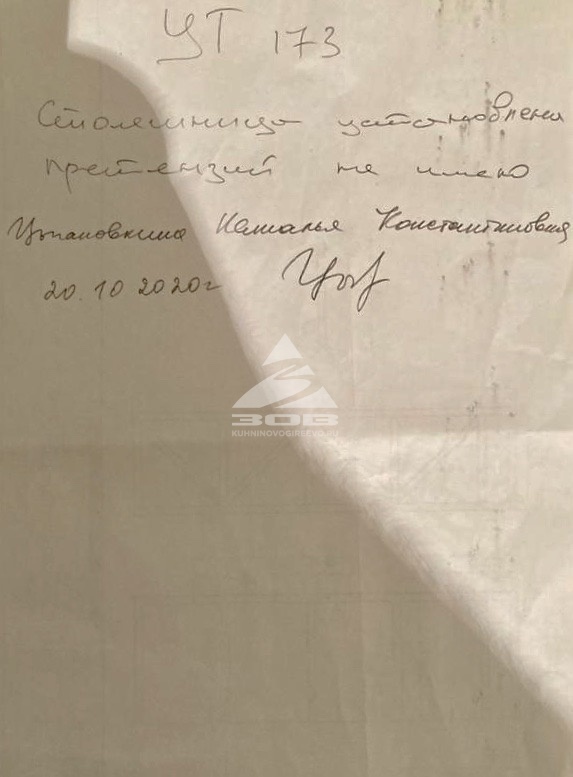 УТ 173
Столешница установлена
претензий не имею
Цыпановкина Наталья Константиновна
20.10 2020г
ЗОВ
KUHNINOVOGIREEVO.RU